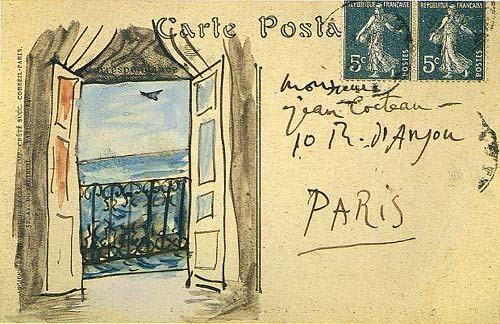 Carte Posta
REPUBLIQUE FRANÇAISE
REPUBLIQUE FRANÇAISE
POSTES
POSTES
5c
5c
monsieur
jean Cocteau
10 R. d'Anjou
PARIS
CRÉTÉ SUCC. CORBEIL-PARIS.